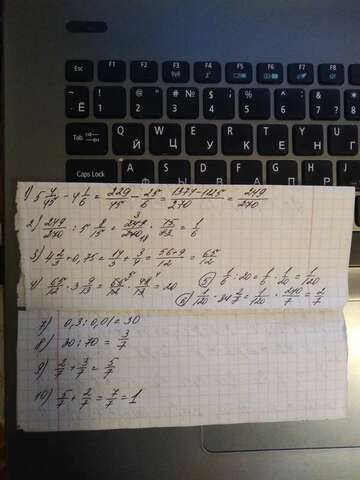 Esc F1 F2 F3 F4 F5 F6 F7 F8
Ё ! 1 " 2 № 3 $ 4 % 5 6 7 8
Tab Й Ц У К Е Н Г
Caps Lock
1) 5 4/45 - 4 1/6 = 229/45 - 25/6 = 1374-1125/270 = 249/270
2) 249/270 : 5 8/15 = 249/270 · 75/83 = 1/6
3) 4 2/3 + 0,75 = 14/3 + 3/4 = 56+9/12 = 65/12
4) 65/12 · 3 9/13 = 65/12 · 48/13 = 20
5) 1/6 : 20 = 1/6 · 1/20 = 1/120
6) 1/120 · 34 2/7 = 1/120 · 240/7 = 2/7
7) 0,3 : 0,01 = 30
8) 30 : 70 = 3/7
9) 2/7 + 3/7 = 5/7
10) 5/7 + 2/7 = 7/7 = 1